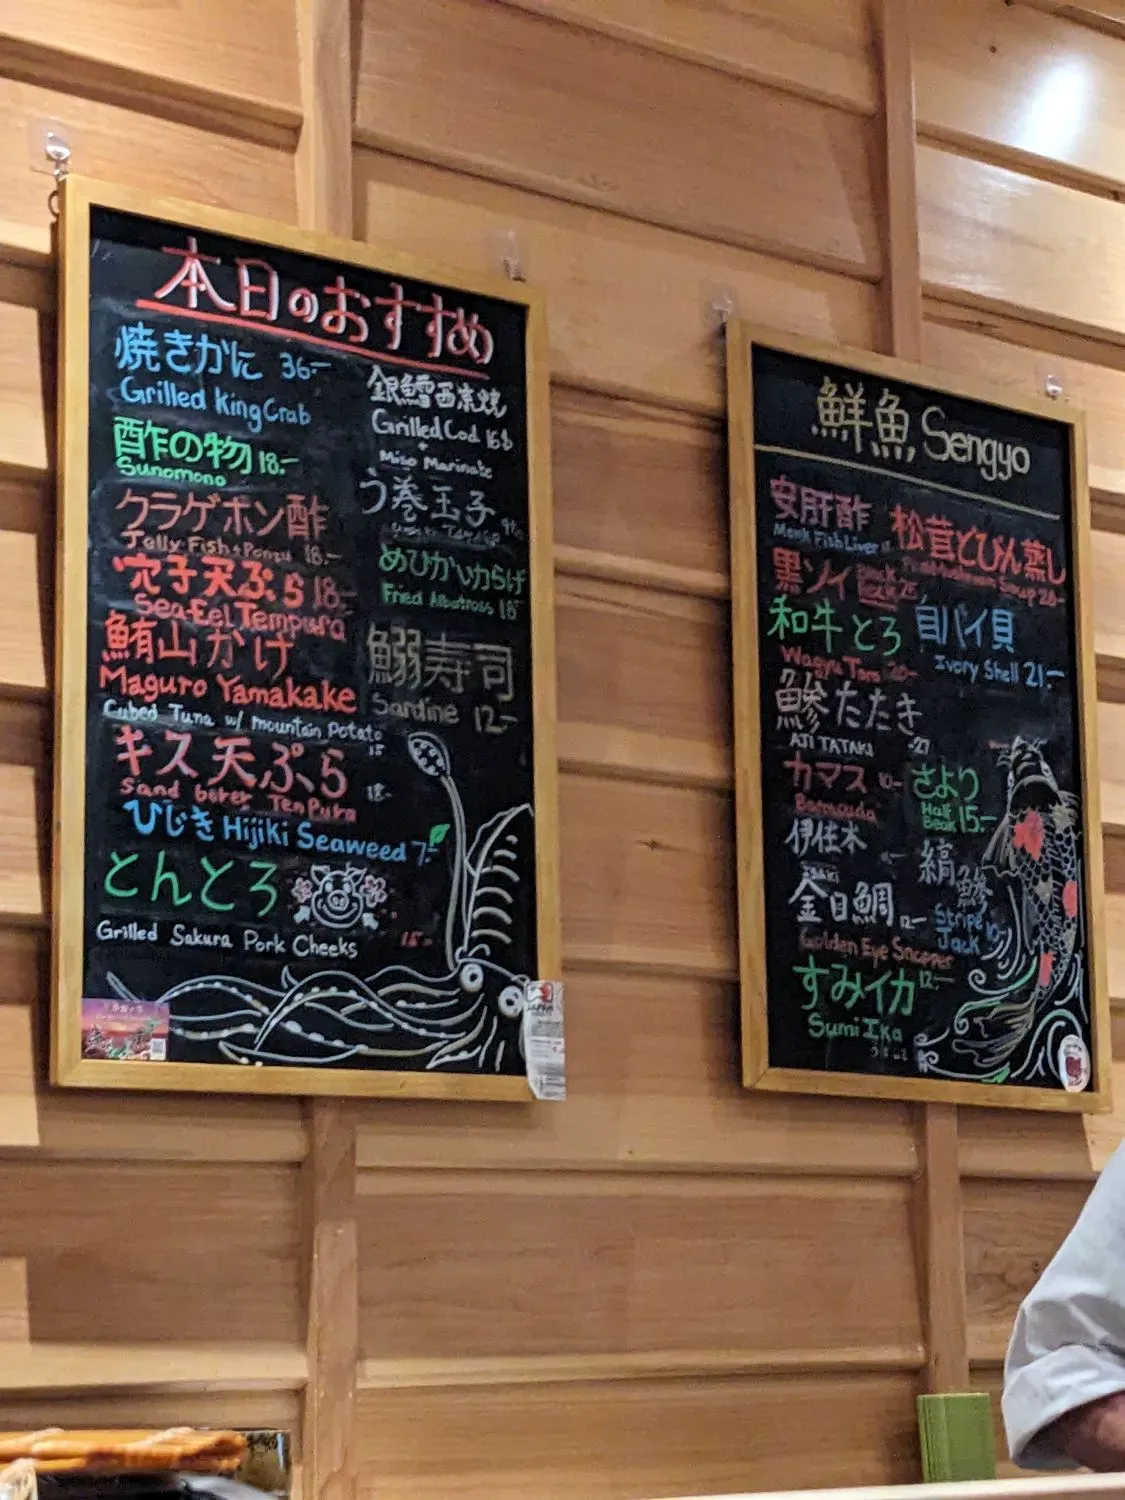 本日のおすすめ
焼きかに 36-
Grilled King Crab
酢の物 18.-
Sunomono
クラゲポン酢
Jelly Fish + Ponzu 18.-
穴子天ぷら 18.-
Sea Eel Tempura
鮪山かけ
Maguro Yamakake
Cubed Tuna w/ Mountain Potato
15
キス天ぷら
Sand borer TenPura 18.-
ひじき Hijiki Seaweed 7.-
とんとろ
Grilled Sakura Pork Cheeks 15-
銀鱈西京焼
Grilled Cod 16
+
Miso Marinate
う巻玉子
めひかりからげ
Fried Albatross 18
鰯寿司
Sardine 12-
鮮魚 Sengyo
安肝酢
Monk Fish Liver
黒ソイ Black 25
和牛とろ
Wagyu Taro 20-
鯵たたき
AJI TATAKI 27
カマス
Barracuda
伊佐木
Isaki
金目鯛 12-
Golden Eye Snapper
すみイカ 12-
Sumi Ika
松茸とびん蒸し
Mushroom Soup 20-
白バイ貝
Ivory Shell 21.-
さより
Half Beak 15.-
縞鯵
Stripe Jack 10-